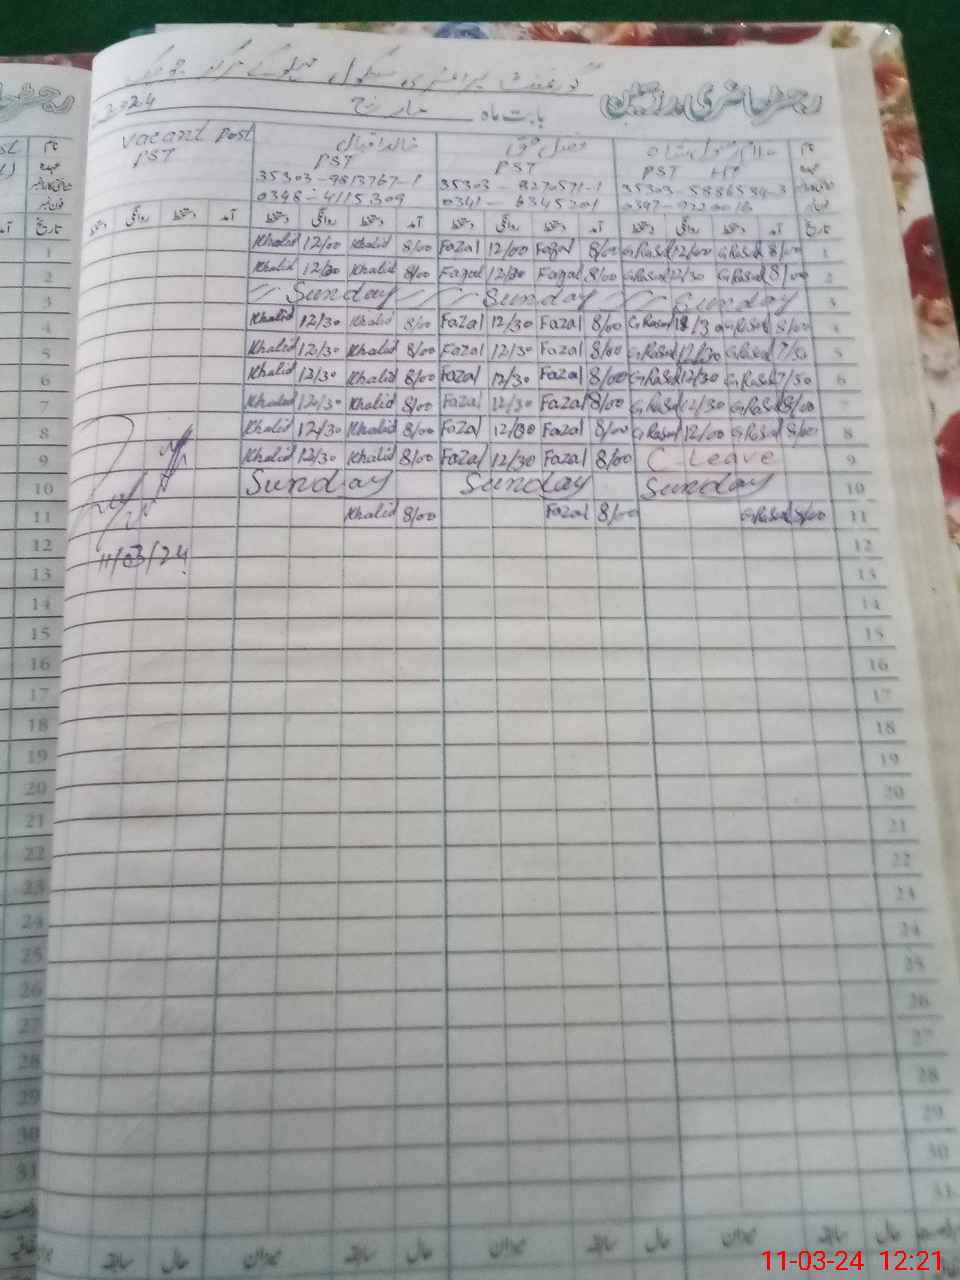 رجسٹر حاضری مدرسین
بابت ماہ مارچ 2024
نام خالد اقبال Vacant Post
عہدہ PST HT PST PST PST
35303-5886584-3 35303-8270571-1 35303-9813767-1
0347-9220016 0341-6345201 0348-4115309
تاریخ آمد دستخط روانگی دستخط آمد دستخط روانگی دستخط آمد دستخط روانگی دستخط آمد دستخط روانگی دستخط
1 Khalid 12/00 Khalid 8/00 Fazal 12/00 Fazal 8/00 G.Rasul 12/00 G.Rasul 8/00 1
2 Khalid 12/30 Khalid 8/00 Fazal 12/30 Fazal 8/00 G.Rasul 12/30 G.Rasul 8/00 2
3 Sunday Sunday Sunday 3
4 Khalid 12/30 Khalid 8/00 Fazal 12/30 Fazal 8/00 G.Rasul 12/30 G.Rasul 8/00 4
5 Khalid 12/30 Khalid 8/00 Fazal 12/30 Fazal 8/00 G.Rasul 12/30 G.Rasul 7/50 5
6 Khalid 12/30 Khalid 8/00 Fazal 12/30 Fazal 8/00 G.Rasul 12/30 G.Rasul 7/50 6
7 Khalid 12/30 Khalid 8/00 Fazal 12/30 Fazal 8/00 G.Rasul 12/30 G.Rasul 8/00 7
8 Khalid 12/30 Khalid 8/00 Fazal 12/30 Fazal 8/00 G.Rasul 12/00 G.Rasul 8/00 8
9 Khalid 12/30 Khalid 8/00 Fazal 12/30 Fazal 8/00 C-Leave 9
10 Sunday Sunday Sunday 10
11 Khalid 8/00 Fazal 8/00 G.Rasul 8/00 11
12 11/03/24 12
13 13
14 14
15 15
16 16
17 17
18 18
19 19
20 20
21 21
22 22
23 23
24 24
25 25
26 26
27 27
28 28
29 29
30 30
31 31
حال سابقہ میزان حال سابقہ میزان حال سابقہ میزان حال سابقہ
11-03-24 12:21